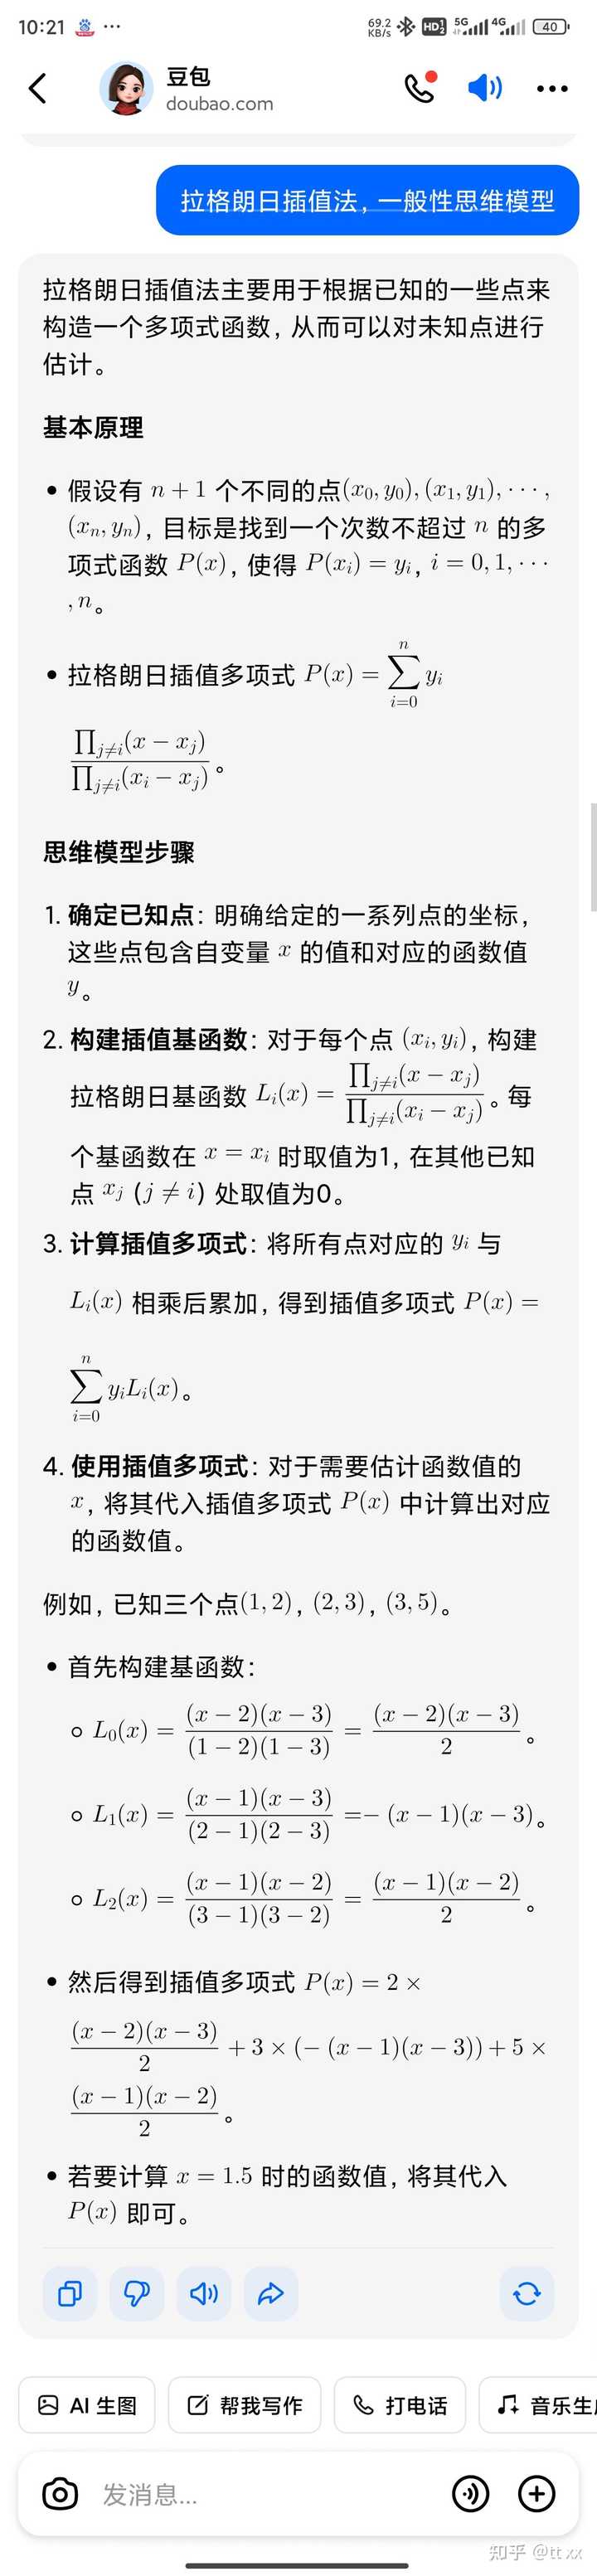 10:21 ... 69.2 KB/s HD 5G 4G 40
豆包
doubao.com
拉格朗日插值法，一般性思维模型
拉格朗日插值法主要用于根据已知的一些点来
构造一个多项式函数，从而可以对未知点进行
估计。
基本原理
• 假设有 n + 1 个不同的点(x₀, y₀), (x₁, y₁), ⋯ ,
(xₙ, yₙ)，目标是找到一个次数不超过 n 的多
项式函数 P(x)，使得 P(xᵢ) = yᵢ, i = 0, 1, ⋯
, n。
• 拉格朗日插值多项式 P(x) = ∑_{i=0}^{n} yᵢ
∏_{j≠i}(x − xⱼ) / ∏_{j≠i}(xᵢ − xⱼ)。
思维模型步骤
1. 确定已知点：明确给定的一系列点的坐标，
这些点包含自变量 x 的值和对应的函数值
y。
2. 构建插值基函数：对于每个点 (xᵢ, yᵢ)，构建
拉格朗日基函数 Lᵢ(x) = ∏_{j≠i}(x − xⱼ) / ∏_{j≠i}(xᵢ − xⱼ)。每
个基函数在 x = xᵢ 时取值为1，在其他已知
点 xⱼ (j ≠ i) 处取值为0。
3. 计算插值多项式：将所有点对应的 yᵢ 与
Lᵢ(x) 相乘后累加，得到插值多项式 P(x) =
∑_{i=0}^{n} yᵢLᵢ(x)。
4. 使用插值多项式：对于需要估计函数值的
x，将其代入插值多项式 P(x) 中计算出对应
的函数值。
例如，已知三个点(1, 2)，(2, 3)，(3, 5)。
• 首先构建基函数：
○ L₀(x) = (x − 2)(x − 3) / (1 − 2)(1 − 3) = (x − 2)(x − 3) / 2。
○ L₁(x) = (x − 1)(x − 3) / (2 − 1)(2 − 3) =− (x − 1)(x − 3)。
○ L₂(x) = (x − 1)(x − 2) / (3 − 1)(3 − 2) = (x − 1)(x − 2) / 2。
• 然后得到插值多项式 P(x) = 2 ×
(x − 2)(x − 3) / 2 + 3 × (− (x − 1)(x − 3)) + 5 ×
(x − 1)(x − 2) / 2。
• 若要计算 x = 1.5 时的函数值，将其代入
P(x) 即可。
AI 生图 帮我写作 打电话 音乐生
发消息...
知乎 @tt xx